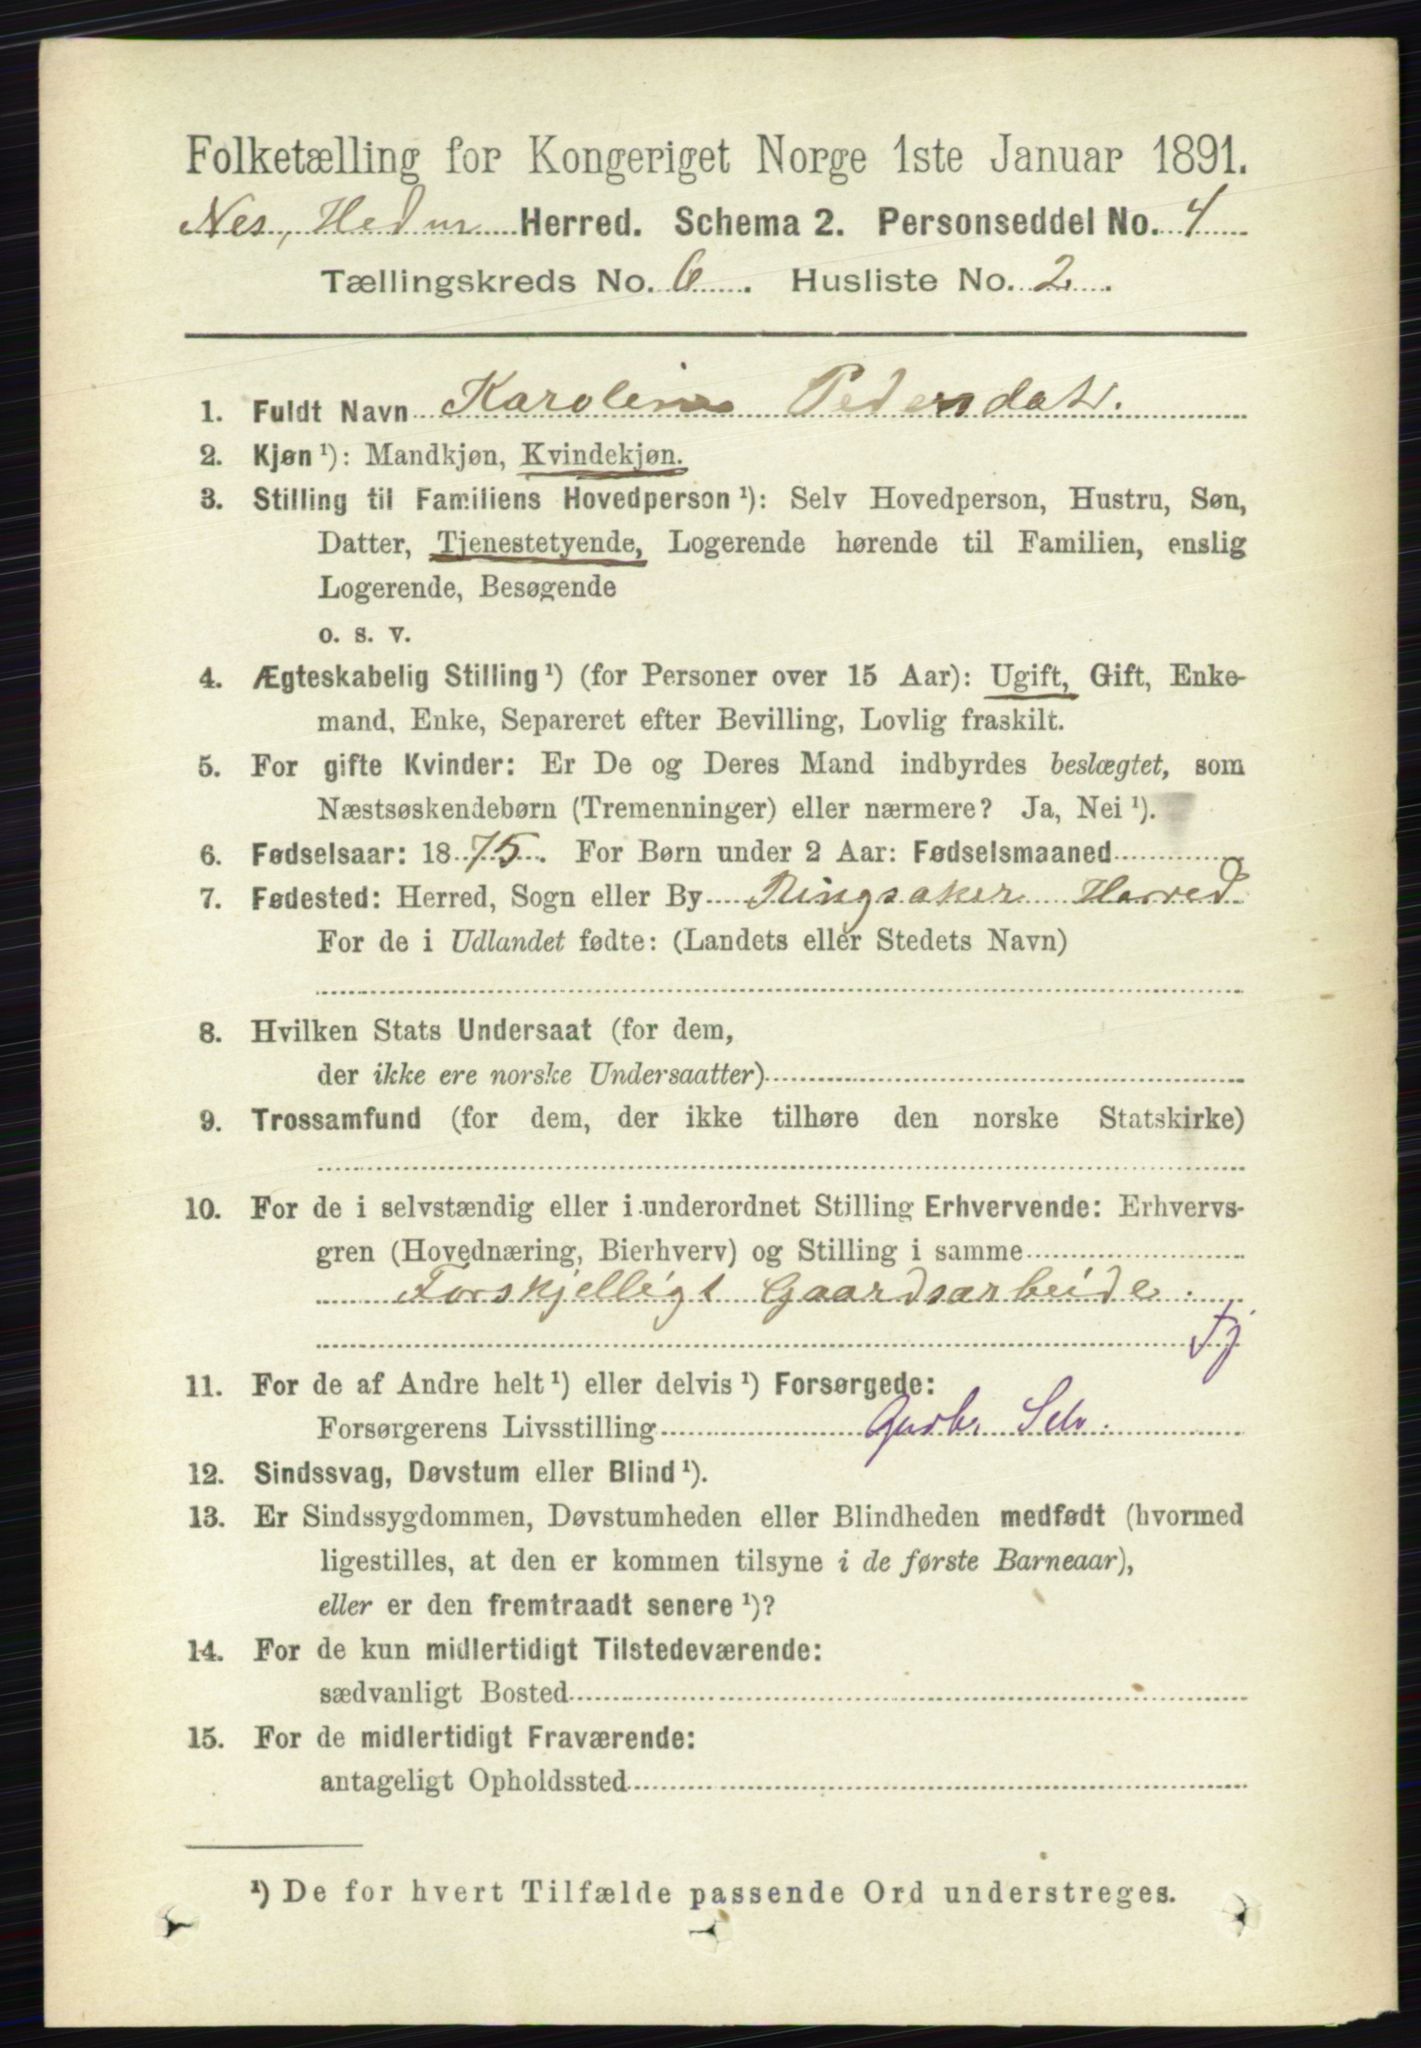 Folketælling for Kongeriget Norge 1ste Januar 1891.
Nes, Hedm Herred. Schema 2. Personseddel No. 4
Tællingskreds No. 6. Husliste No. 2.
1. Fuldt Navn Karoline Pedersdatr.
2. Kjøn ¹): Mandkjøn, Kvindekjøn.
3. Stilling til Familiens Hovedperson ¹): Selv Hovedperson, Hustru, Søn,
Datter, Tjenestetyende, Logerende hørende til Familien, enslig
Logerende, Besøgende
o. s. v.
4. Ægteskabelig Stilling ¹) (for Personer over 15 Aar): Ugift, Gift, Enke-
mand, Enke, Separeret efter Bevilling, Lovlig fraskilt.
5. For gifte Kvinder: Er De og Deres Mand indbyrdes beslægtet, som
Næstsøskendebørn (Tremenninger) eller nærmere? Ja, Nei ¹).
6. Fødselsaar: 1875. For Børn under 2 Aar: Fødselsmaaned
7. Fødested: Herred, Sogn eller By Ringsaker Herred
For de i Udlandet fødte: (Landets eller Stedets Navn)
8. Hvilken Stats Undersaat (for dem,
der ikke ere norske Undersaatter)
9. Trossamfund (for dem, der ikke tilhøre den norske Statskirke)
10. For de i selvstændig eller i underordnet Stilling Erhvervende: Erhvervs-
gren (Hovednæring, Bierhverv) og Stilling i samme
Forskjelligt Gaardsarbeide.
Tj
11. For de af Andre helt ¹) eller delvis ¹) Forsørgede:
Forsørgerens Livsstilling Gaardbr. Selv.
12. Sindssvag, Døvstum eller Blind ¹).
13. Er Sindssygdommen, Døvstumheden eller Blindheden medfødt (hvormed
ligestilles, at den er kommen tilsyne i de første Barneaar),
eller er den fremtraadt senere ¹)?
14. For de kun midlertidigt Tilstedeværende:
sædvanligt Bosted
15. For de midlertidigt Fraværende:
antageligt Opholdssted
¹) De for hvert Tilfælde passende Ord understreges.